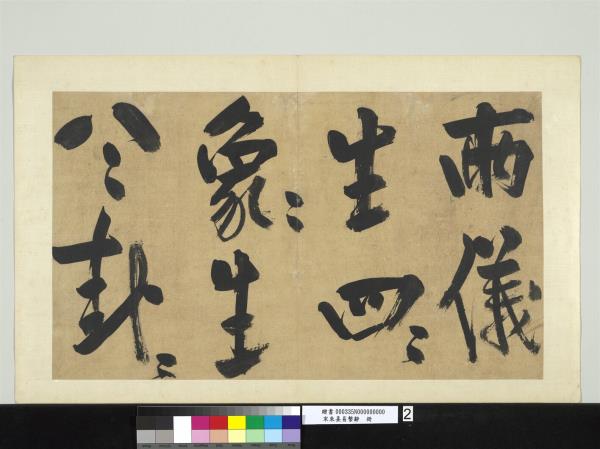 兩儀
生四〻
象〻生
八〻卦〻
贈書 000335N000000000
宋朱熹易繫辭 冊
2